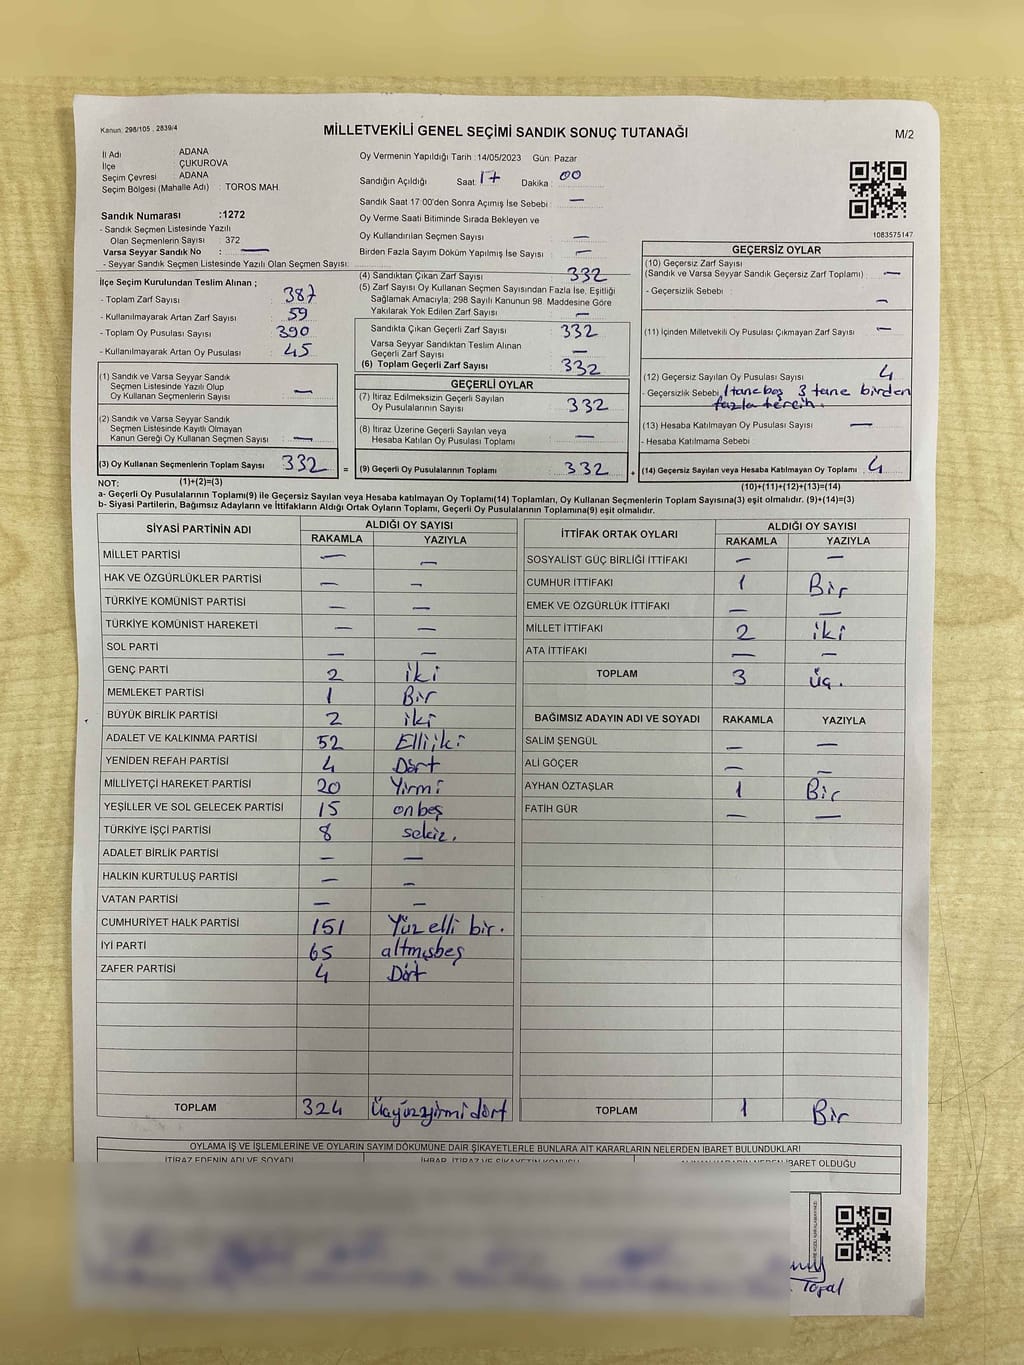 Kanun: 298/105 , 2839/4
MİLLETVEKİLİ GENEL SEÇİMİ SANDIK SONUÇ TUTANAĞI
M/2
İl Adı : ADANA
İlçe : ÇUKUROVA
Seçim Çevresi : ADANA
Seçim Bölgesi (Mahalle Adı) : TOROS MAH.
Sandık Numarası :1272
- Sandık Seçmen Listesinde Yazılı
Olan Seçmenlerin Sayısı : 372
Varsa Seyyar Sandık No : —
- Seyyar Sandık Seçmen Listesinde Yazılı Olan Seçmen Sayısı:
Oy Vermenin Yapıldığı Tarih :14/05/2023 Gün: Pazar
Sandığın Açıldığı Saat: 17 Dakika : 00
Sandık Saat 17:00'den Sonra Açımış İse Sebebi : —
Oy Verme Saati Bitiminde Sırada Bekleyen ve
Oy Kullandırılan Seçmen Sayısı : —
Birden Fazla Sayım Döküm Yapılmış İse Sayısı : —
1083575147
İlçe Seçim Kurulundan Teslim Alınan ;
- Toplam Zarf Sayısı : 387
- Kullanılmayarak Artan Zarf Sayısı : 59
- Toplam Oy Pusulası Sayısı : 390
- Kullanılmayarak Artan Oy Pusulası : 45
(1) Sandık ve Varsa Seyyar Sandık
Seçmen Listesinde Yazılı Olup
Oy Kullanan Seçmenlerin Sayısı : —
(2) Sandık ve Varsa Seyyar Sandık
Seçmen Listesinde Kayıtlı Olmayan
Kanun Gereği Oy Kullanan Seçmen Sayısı : —
(3) Oy Kullanan Seçmenlerin Toplam Sayısı : 332 =
(1)+(2)=(3)
(4) Sandıktan Çıkan Zarf Sayısı : 332
(5) Zarf Sayısı Oy Kullanan Seçmen Sayısından Fazla İse, Eşitliği
Sağlamak Amacıyla; 298 Sayılı Kanunun 98. Maddesine Göre
Yakılarak Yok Edilen Zarf Sayısı : —
Sandıkta Çıkan Geçerli Zarf Sayısı : 332
Varsa Seyyar Sandıktan Teslim Alınan
Geçerli Zarf Sayısı : —
(6) Toplam Geçerli Zarf Sayısı : 332
GEÇERLİ OYLAR
(7) İtiraz Edilmeksizin Geçerli Sayılan
Oy Pusulalarının Sayısı : 332
(8) İtiraz Üzerine Geçerli Sayılan veya
Hesaba Katılan Oy Pusulası Toplamı : —
(9) Geçerli Oy Pusulalarının Toplamı : 332 +
GEÇERSİZ OYLAR
(10) Geçersiz Zarf Sayısı
(Sandık ve Varsa Seyyar Sandık Geçersiz Zarf Toplamı) : —
- Geçersizlik Sebebi : —
(11) İçinden Milletvekili Oy Pusulası Çıkmayan Zarf Sayısı : —
(12) Geçersiz Sayılan Oy Pusulası Sayısı : 4
- Geçersizlik Sebebi : 1 tane boş 3 tane birden
fazla tercih.
(13) Hesaba Katılmayan Oy Pusulası Sayısı : —
- Hesaba Katılmama Sebebi
(14) Geçersiz Sayılan veya Hesaba Katılmayan Oy Toplamı : 4
(10)+(11)+(12)+(13)=(14)
NOT:
a- Geçerli Oy Pusulalarının Toplamı(9) ile Geçersiz Sayılan veya Hesaba katılmayan Oy Toplamı(14) Toplamları, Oy Kullanan Seçmenlerin Toplam Sayısına(3) eşit olmalıdır. (9)+(14)=(3)
b- Siyasi Partilerin, Bağımsız Adayların ve İttifakların Aldığı Ortak Oyların Toplamı, Geçerli Oy Pusulalarının Toplamına(9) eşit olmalıdır.
SİYASİ PARTİNİN ADI ALDIĞI OY SAYISI
RAKAMLA YAZIYLA
MİLLET PARTİSİ — —
HAK VE ÖZGÜRLÜKLER PARTİSİ — —
TÜRKİYE KOMÜNİST PARTİSİ — —
TÜRKİYE KOMÜNİST HAREKETİ — —
SOL PARTİ — —
GENÇ PARTİ 2 iki
MEMLEKET PARTİSİ 1 Bir
BÜYÜK BİRLİK PARTİSİ 2 iki
ADALET VE KALKINMA PARTİSİ 52 Elliiki
YENİDEN REFAH PARTİSİ 4 Dört
MİLLİYETÇİ HAREKET PARTİSİ 20 Yirmi
YEŞİLLER VE SOL GELECEK PARTİSİ 15 onbeş
TÜRKİYE İŞÇİ PARTİSİ 8 sekiz.
ADALET BİRLİK PARTİSİ — —
HALKIN KURTULUŞ PARTİSİ — —
VATAN PARTİSİ — —
CUMHURİYET HALK PARTİSİ 151 Yüz elli bir.
İYİ PARTİ 65 altmışbeş
ZAFER PARTİSİ 4 Dört
TOPLAM 324 Üçyüzyirmi dört
İTTİFAK ORTAK OYLARI ALDIĞI OY SAYISI
RAKAMLA YAZIYLA
SOSYALİST GÜÇ BİRLİĞİ İTTİFAKI — —
CUMHUR İTTİFAKI 1 Bir
EMEK VE ÖZGÜRLÜK İTTİFAKI — —
MİLLET İTTİFAKI 2 iki
ATA İTTİFAKI — —
TOPLAM 3 üç.
BAĞIMSIZ ADAYIN ADI VE SOYADI RAKAMLA YAZIYLA
SALİM ŞENGÜL — —
ALİ GÖÇER — —
AYHAN ÖZTAŞLAR 1 Bir
FATİH GÜR — —
TOPLAM 1 Bir
OYLAMA İŞ VE İŞLEMLERİNE VE OYLARIN SAYIM DÖKÜMÜNE DAİR ŞİKAYETLERLE BUNLARA AİT KARARLARIN NELERDEN İBARET BULUNDUKLARI
İTİRAZ EDENİN ADI VE SOYADI İHBAR, İTİRAZ VE ŞİKAYETİN KONUSU ALINAN KARARIN NEDEN İBARET OLDUĞU
Topal